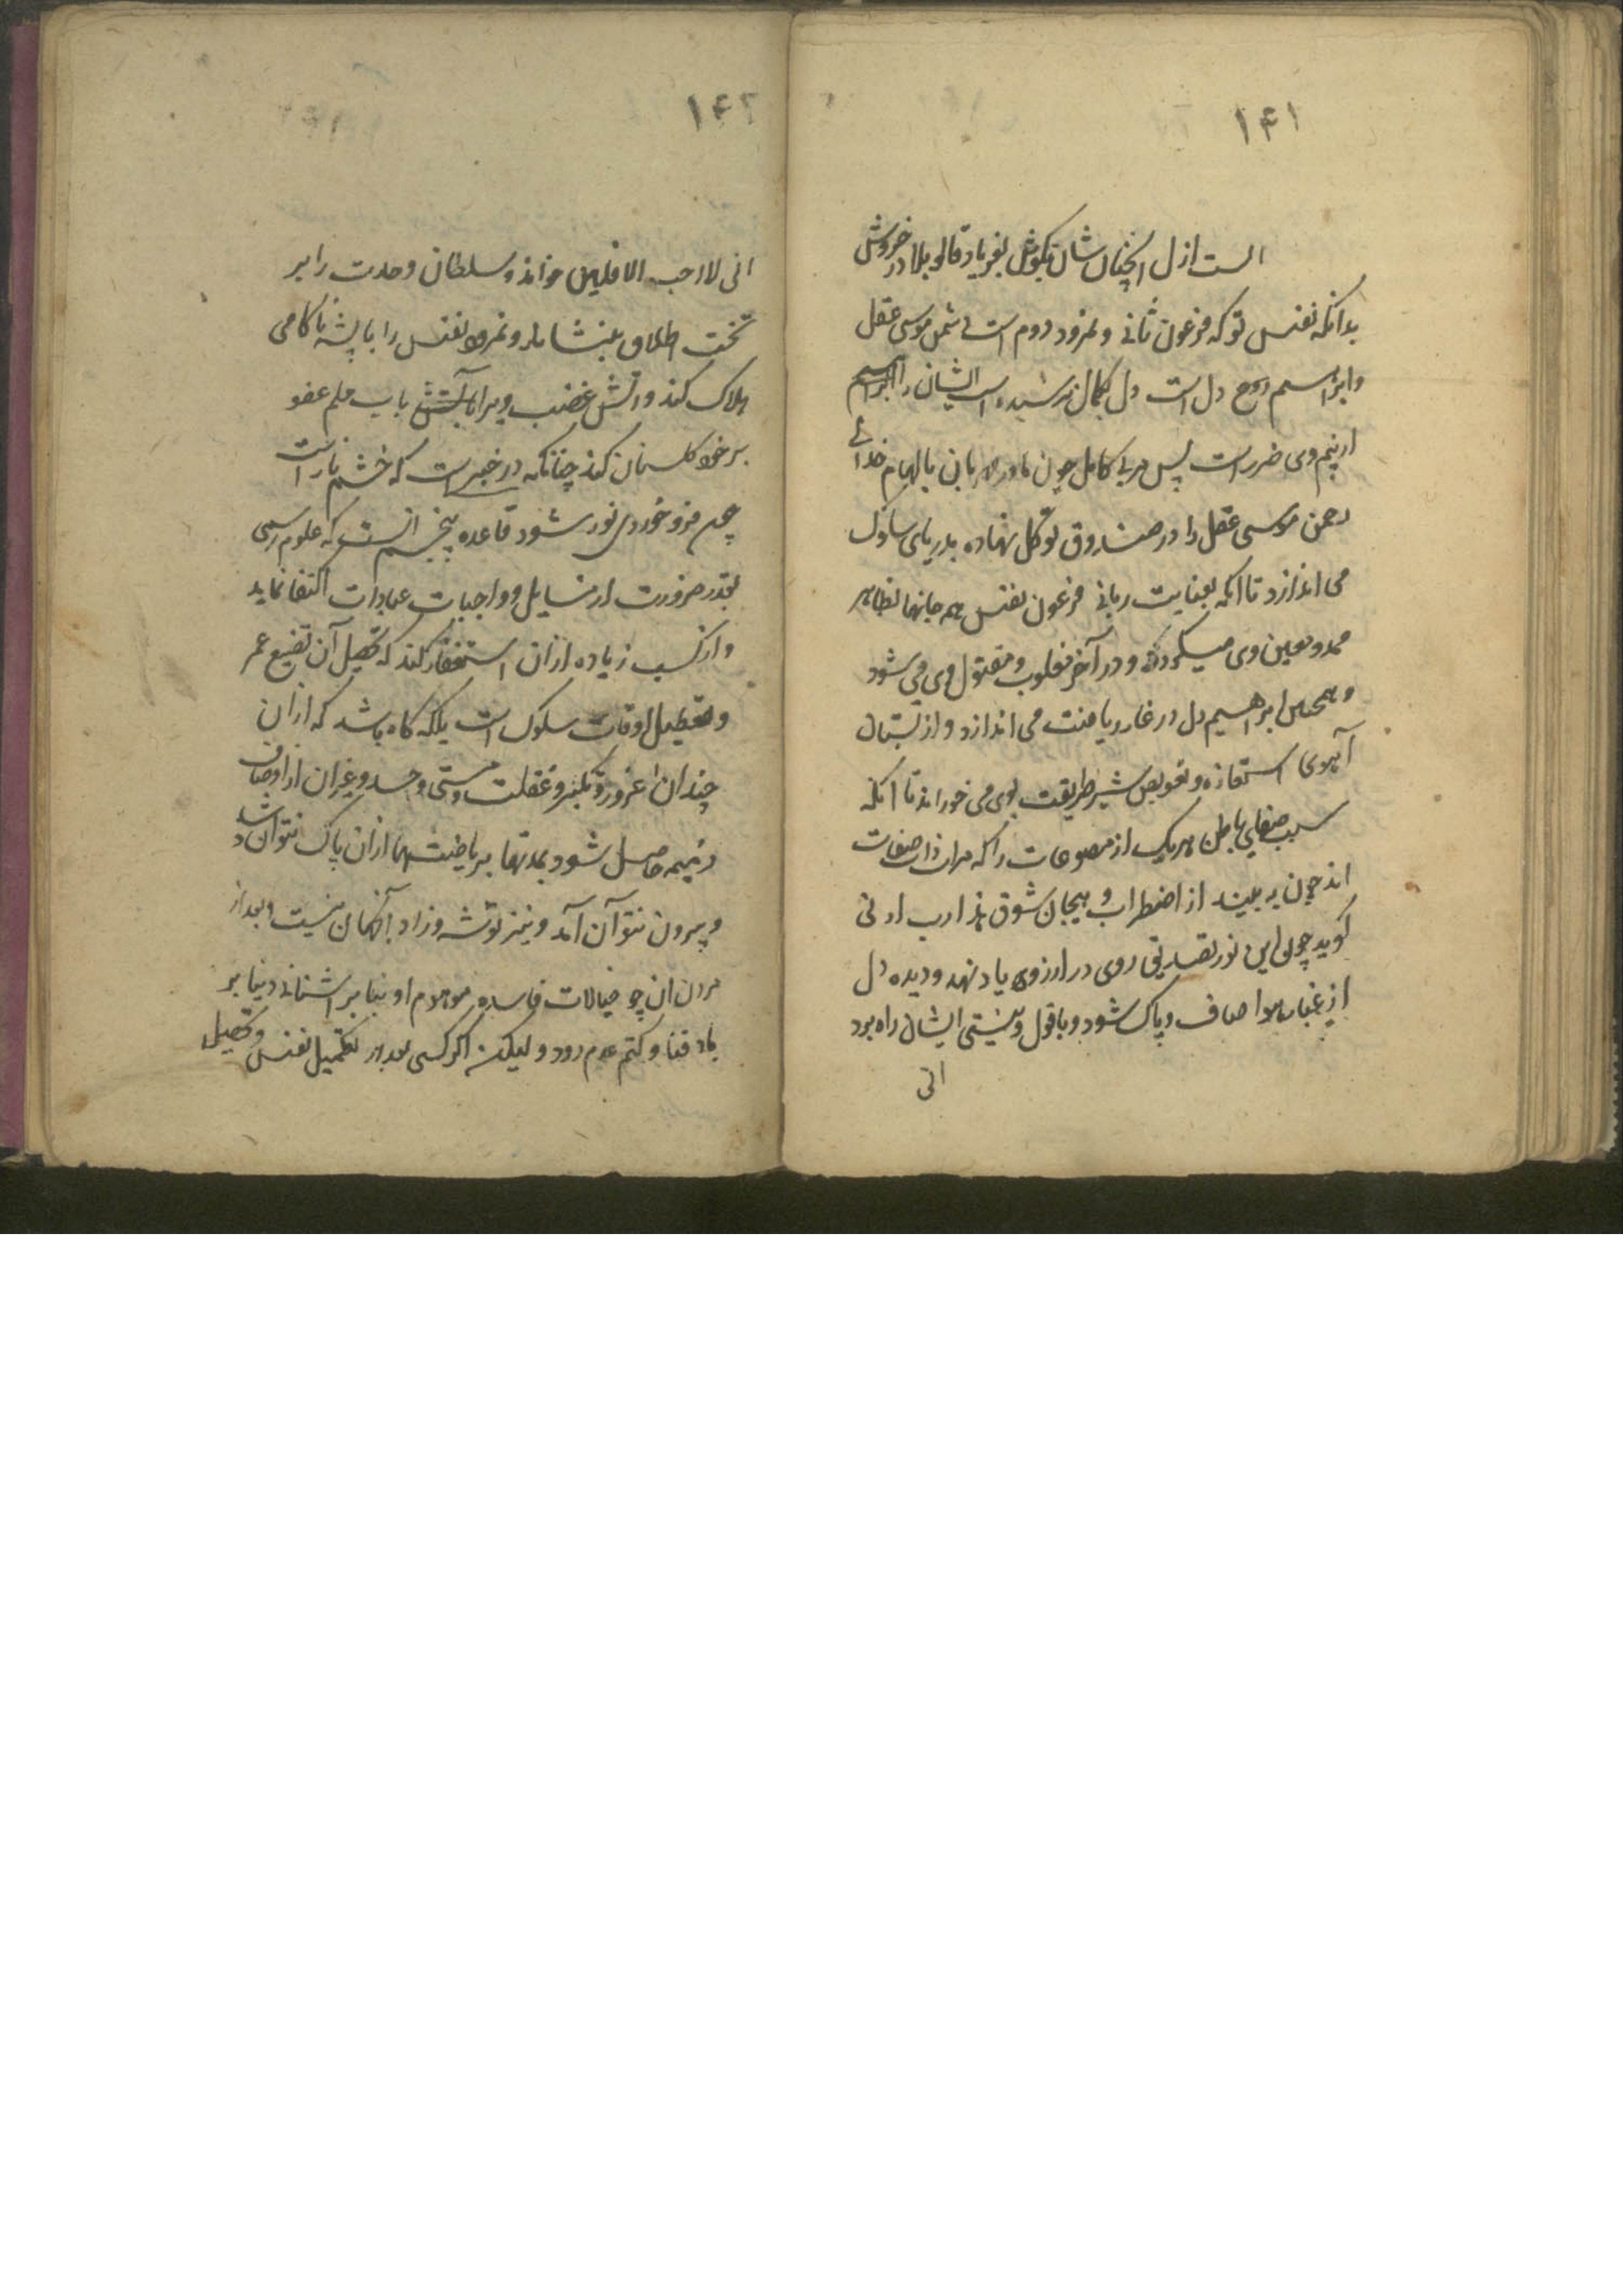 ۱۴۱
الست ازل آنچنان شان بگوش بفریاد قالو بلا در خروش
بدانکه نفس تو که فرعون ثانی و نمرود دوم است دشمن موسی عقل
و ابراهیم روح دل است دل بکمال نرسیده است ایشان را
از بیم وی ضرر است پس مربی کامل چون مادر مهربان بالهام خدائی
رحمن موسی عقل را در صندوق توکل نهاده بدریای سلوک
می اندازد تا آنکه بعنایت ربانی فرعون نفس همه جانها بظاهر
ممد و معین وی میگردد و در آخر مغلوب و مقتول وی می شود
و همچنین ابراهیم دل در غار ریاضت می اندازد و از پستان
آهوی استعاذه و تعویض شیر طریقت بوی می خوراند تا آنکه
بسبب صفای باطن هر یک از مصنوعات را که مرات ذات صفات
اند چون به بیند از اضطراب و هیجان شوق هذا رب ارنی
گوید چون این نور تصدیق روی در ارزوی یاد نهد و دیده دل
از غبار هوا صاف و پاک شود و باقول و نیستی ایشان راه برد
انی
۱۴۲
انی لا احب الافلین خواند و سلطان وحدت را بر
تخت اطلاق بنشاند و نمرود نفس را با پشه ناکامی
هلاک کند و آتش غضب ویرا بآب حلم عفو
بر خود گلستان کند چنانکه در خبر است که خشم نار است
چون فرو خوردی نور شود قاعده پنجم آنست که علوم رسمی
بقدر ضرورت از مسایل و واجبات عبادات اکتفا نماید
و از کسب زیاده از آن استغفار کند که تحصیل آن تضیع عمر
و تعطیل اوقات سلوک است بلکه گاه باشد که از آن
چندان غرور و تکبر و غفلت و مستی و حسد و غیر آن از اوصاف
ذمیمه حاصل شود بمدتها بریاضتها از آن پاک نتواند شد
و بیرون نتوان آمد و نیز توشه و زاد آنجهان نیست و بعد از
مردن آن چو خیالات فاسده موهوم او بنا بر اشنائی دنیا بر
باد فنا و کتم عدم رود و لیکن اگر کسی بعد از تکمیل نفس و تحصیل